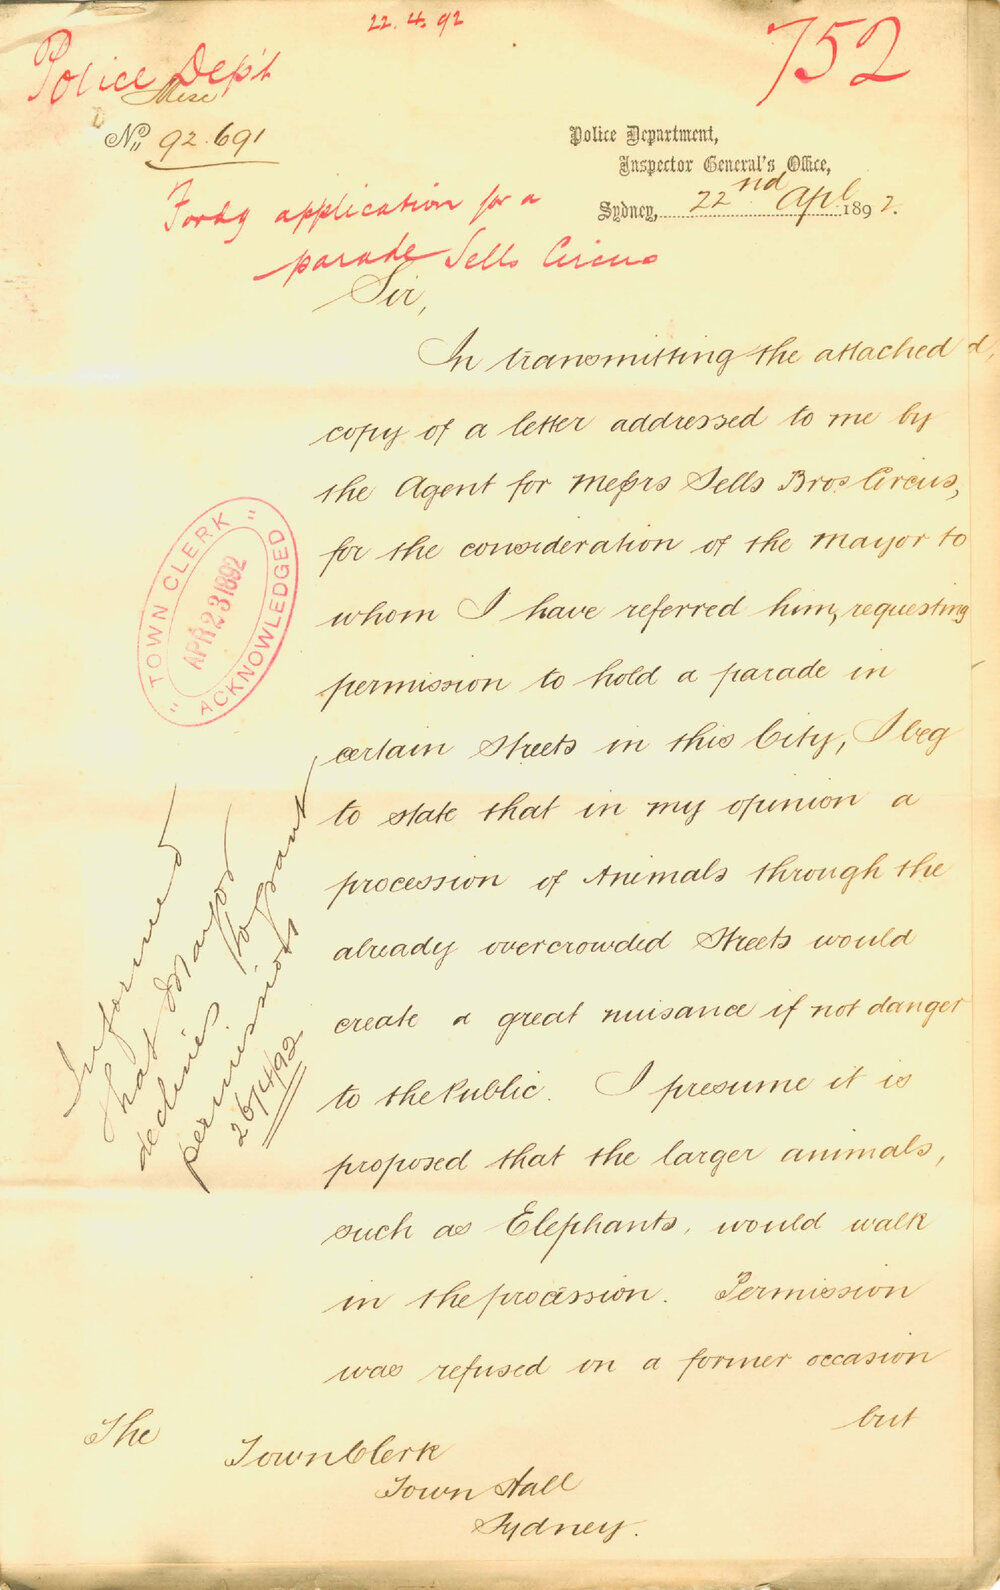 22.4.92
752
Police Dep't
Misc
No 92.691
Police Department,
Inspector General's Office,
Sydney, 22nd Apl 1892.
Fordg application for a
parade Sells Circus
Sir,
In transmitting the attached
copy of a letter addressed to me by
the Agent for Messrs Sells Bros Circus,
for the consideration of the Mayor to
whom I have referred him, requesting
permission to hold a parade in
certain Streets in this City, I beg
to state that in my opinion a
procession of Animals through the
already overcrowded Streets would
create a great nuisance if not danger
to the Public. I presume it is
proposed that the larger animals,
such as Elephants, would walk
in the procession. Permission
was refused on a former occasion
but
The
Town Clerk
Town Hall
Sydney.
"TOWN CLERK"
APR 23 1892
ACKNOWLEDGED
Informed
that Mayor
declines to grant
permission
26/4/92